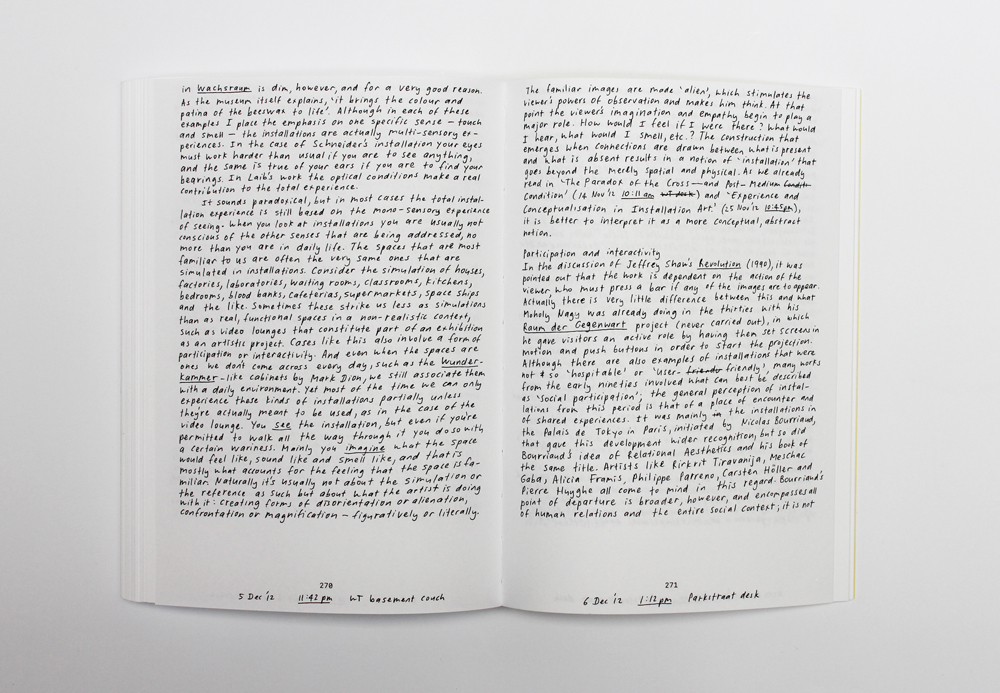 in Wachsraum is dim, however, and for a very good reason.
As the museum itself explains, 'it brings the colour and
patina of the beeswax to life'. Although in each of these
examples I place the emphasis on one specific sense – touch
and smell – the installations are actually multi-sensory ex-
periences. In the case of Schneider's installation your eyes
must work harder than usual if you are to see anything,
and the same is true of your ears if you are to find your
bearings. In Laib's work the optical conditions make a real
contribution to the total experience.
It sounds paradoxical, but in most cases the total instal-
lation experience is still based on the mono-sensory experience
of seeing. When you look at installations you are usually not
conscious of the other senses that are being addressed, no
more than you are in daily life. The spaces that are most
familiar to us are often the very same ones that are
simulated in installations. Consider the simulation of houses,
factories, laboratories, waiting rooms, classrooms, kitchens,
bedrooms, blood banks, cafeterias, supermarkets, space ships
and the like. Sometimes these strike us less as simulations
than as real, functional spaces in a non-realistic context,
such as video lounges that constitute part of an exhibition
as an artistic project. Cases like this also involve a form of
participation or interactivity. And even when the spaces are
ones we don't come across every day, such as the Wunder-
kammer-like cabinets by Mark Dion, we still associate them
with a daily environment. Yet most of the time we can only
experience these kinds of installations partially unless
they're actually meant to be used, as in the case of the
video lounge. You see the installation, but even if you're
permitted to walk all the way through it you do so with
a certain wariness. Mainly you imagine what the space
would feel like, sound like and smell like, and that is
mostly what accounts for the feeling that the space is fa-
miliar. Naturally it's usually not about the simulation or
the reference as such but about what the artist is doing
with it: creating forms of disorientation or alienation,
confrontation or magnification – figuratively or literally.
270
5 Dec '12 11:42 pm WT basement couch
The familiar images are made 'alien', which stimulates the
viewer's powers of observation and makes him think. At that
point the viewer's imagination and empathy begin to play a
major role. How would I feel if I were there? What would
I hear, what would I smell, etc.? The construction that
emerges when connections are drawn between what is present
and what is absent results in a notion of 'installation' that
goes beyond the merely spatial and physical. As we already
read in 'The Paradox of the Cross – and Post-Medium Condit
Condition' (14 Nov '12 10:11 am WT desk) and 'Experience and
Conceptualisation in Installation Art.' (25 Nov '12 10:45pm),
it is better to interpret it as a more conceptual, abstract
notion.
Participation and interactivity
In the discussion of Jeffrey Shaw's Revolution (1990), it was
pointed out that the work is dependent on the action of the
viewer who must press a bar if any of the images are to appear.
Actually there is very little difference between this and what
Moholy Nagy was already doing in the thirties with his
Raum der Gegenwart project (never carried out), in which
he gave visitors an active role by having them set screens in
motion and push buttons in order to start the projection.
Although there are also examples of installations that were
not so 'hospitable' or 'user-friendly', many works
from the early nineties involved what can best be described
as 'social participation'; the general perception of instal-
lations from this period is that of a place of encounter and
of shared experiences. It was mainly in the installations in
the Palais de Tokyo in Paris, initiated by Nicolas Bourriaud,
that gave this development wider recognition, but so did
Bourriaud's idea of Relational Aesthetics and his book of
the same title. Artists like Rirkrit Tiravanija, Meschac
Gaba, Alicia Framis, Philippe Parreno, Carsten Höller and
Pierre Huyghe all come to mind in this regard. Bourriaud's
point of departure is broader, however, and encompasses all
of human relations and the entire social context; it is not
271
6 Dec '12 1:12 pm Parkstraat desk